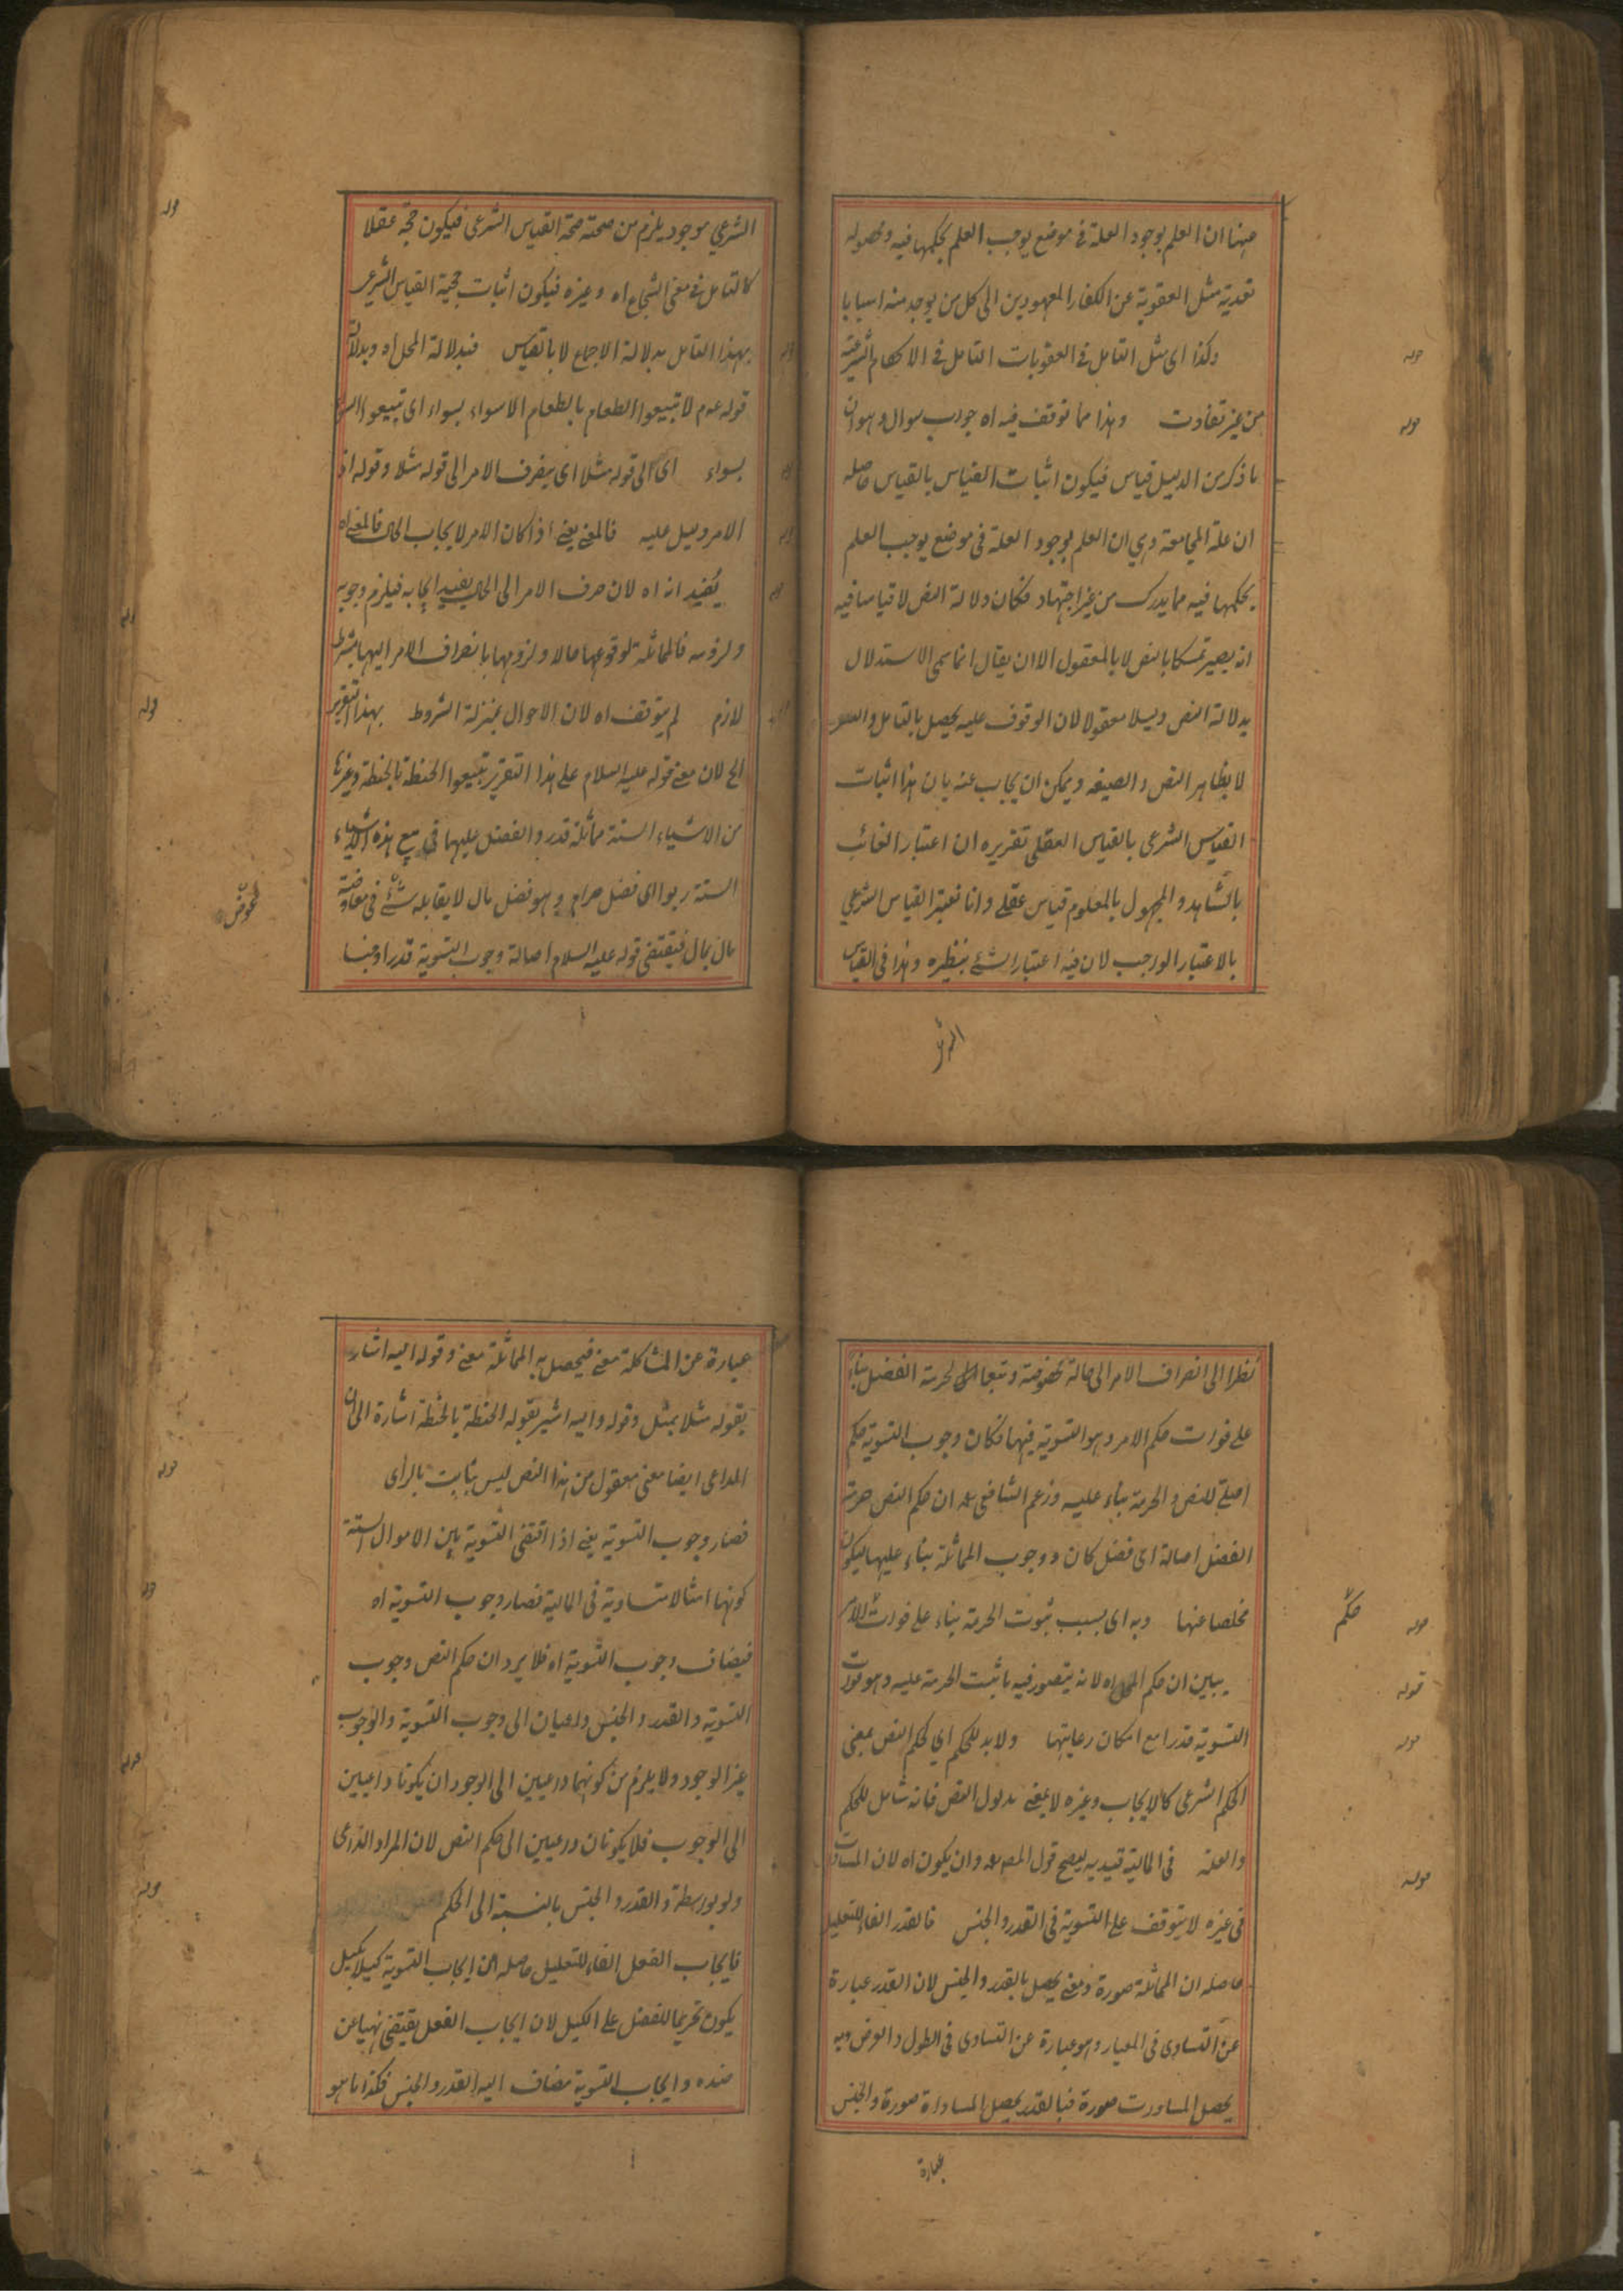 ههنا ان العلم بوجود العلة فى موضع يوجب العلم بحكمها فيه وحصوله
تعدية مثل العقوبة عن الكفار المعهودين الى كل من يوجد منه اسبابا
قوله
وكذا اى مثل التامل فى العقوبات التامل فى الاحكام الشرعية
قوله
من غير تفاوت وهذا مما توقف فيه اه جواب سوال وهو ان
ما ذكر من الدليل قياس فيكون اثبات القياس بالقياس حاصله
ان علة المجامعة وهي ان العلم بوجود العلة فى موضع يوجب العلم
بحكمها فيه مما يدرك من غير اجتهاد فكان دلالة النص لا قياسا فيه
انه يصير تمسكا بالنص لا بالمعقول الا ان يقال انما سمى الاستدلال
بدلالة النص دليلا معقولا لان الوقوف عليه يحصل بالتامل والعقل
لا بظاهر النص والصيغة ويمكن ان يجاب عنه بان هذا اثبات
القياس الشرعى بالقياس العقلى تقريره ان اعتبار الغائب
بالشاهد والمجهول بالمعلوم قياس عقلے وانا نعتبر القياس الشرعي
بالاعتبار الواجب لان فيه اعتبار الشئے بنظيره وهذا فى القياس
الشرعي
قوله
الشرعي موجود يلزم من صحته صحة القياس الشرعى فيكون حجة عقلا
كالتامل فى معنى الشجاع اه وغيره فيكون اثبات حجية القياس الشرعى
بهذا التامل بدلالة الاجماع لا بالقياس فبدلالة المحل اه وبدلالة
قوله عم لا تبيعوا الطعام بالطعام الا سواء بسواء اى تبيعوا السواء
بسواء اى الى قوله مثلا اى يصرف الامر الى قوله مثلا وقوله اذ
الامر دليل عليه فالمعنے يعنے اذا كان الامر لايجاب الحال فالمعنے اه
قوله
يفيد انه اه لان صرف الامر الى الحال يفيد ايجابه فيلزم وجوبه
ولزومه فالمماثلة لوقوعها حالا ولزومها بانصراف الامر اليها بشرط
قوله
لازم لم يتوقف اه لان الاحوال بمنزلة الشروط بهذا التقرير
الخ لان معنے قوله عليه السلام على هذا التقرير تبيعوا الحنطة بالحنطة وغيرها
من الاشياء الستة مماثلة قدر والفضل عليها فى بيع هذه الاشياء
الستة ربوا اى فضل حرام وهو فضل مال لا يقابله شئے فى معاوضة
مال بمال فيقتضى قوله عليه السلام اصالة وجوب التسوية قدرا وجنسا
نظرا الى انصراف الامر الى حالة مخصوصة وتبعا الى لحرمة الفضل بناء
على فوات حكم الامر وهو التسوية فيها فكان وجوب التسوية حكم
اصلے للنص والحرمة بناء عليه وزعم الشافعى رح ان حكم النص حرمة
الفضل اصالة اى فضل كان ووجوب المماثلة بناء عليها ليكون
قوله
حكم
مخلصا عنها وبه اى بسبب ثبوت الحرمة بناء على فوات الامر
قوله
يبين ان حكم المحل اه لانه يتصور فيه ما ثبت الحرمة عليه وهو فوات
قوله
التسوية قدرا مع امكان رعايتها ولابد للحكم اي لحكم النص بمعنى
الحكم الشرعى كالايجاب وغيره لا بمعنى مدلول النص فانه شامل للحكم
قوله
والعلة فى المالية قيد به ليصح قول المص رح وان يكون اه لان المساوات
فى غيره لا يتوقف على التسوية فى القدر والجنس فالقدر الفاء للتعليل
حاصله ان المماثلة صورة ومعنے يحصل بالقدر والجنس لان القدر عبارة
عن التساوى فى المعيار وهو عبارة عن التساوى فى الطول والعرض وبه
يحصل المساورت صورة فبالقدر يحصل المساواة صورة والجنس
عبارة
عبارة عن المشاكلة معنے فيحصل به المماثلة معنے وقوله اليه اشار
بقوله مثلا بمثل وقوله واليه اشير بقوله الحنطة بالحنطة اشارة الى ان
قوله
الداعى ايضا معنى معقول من هذا النص ليس بثابت بالرأى
فصار وجوب التسوية يعنے اذا اقتضى التسوية بين الاموال الستة
قوله
كونها امثالا متساوية فى المالية فصار وجوب التسوية اه
فيضاف وجوب التسوية اه فلا يرد ان حكم النص وجوب
التسوية والقدر والجنس داعيان الى وجوب التسوية والوجوب
غير الوجود ولا يلزم من كونهما داعيين الى الوجود ان يكونا داعيين
الى الوجوب فلا يكونان داعيين الى حكم النص لان المراد الداعى
قوله
ولو بواسطة والقدر والجنس بالنسبة الى الحكم
فايجاب الفعل الفاء للتعليل حاصله ان ايجاب التسوية كيلا بكيل
يكون تحريما للفضل على الكيل لان ايجاب الفعل يقتضى نهيا عن
ضده وايجاب التسوية مضاف اليه القدر والجنس فكذا ما هو